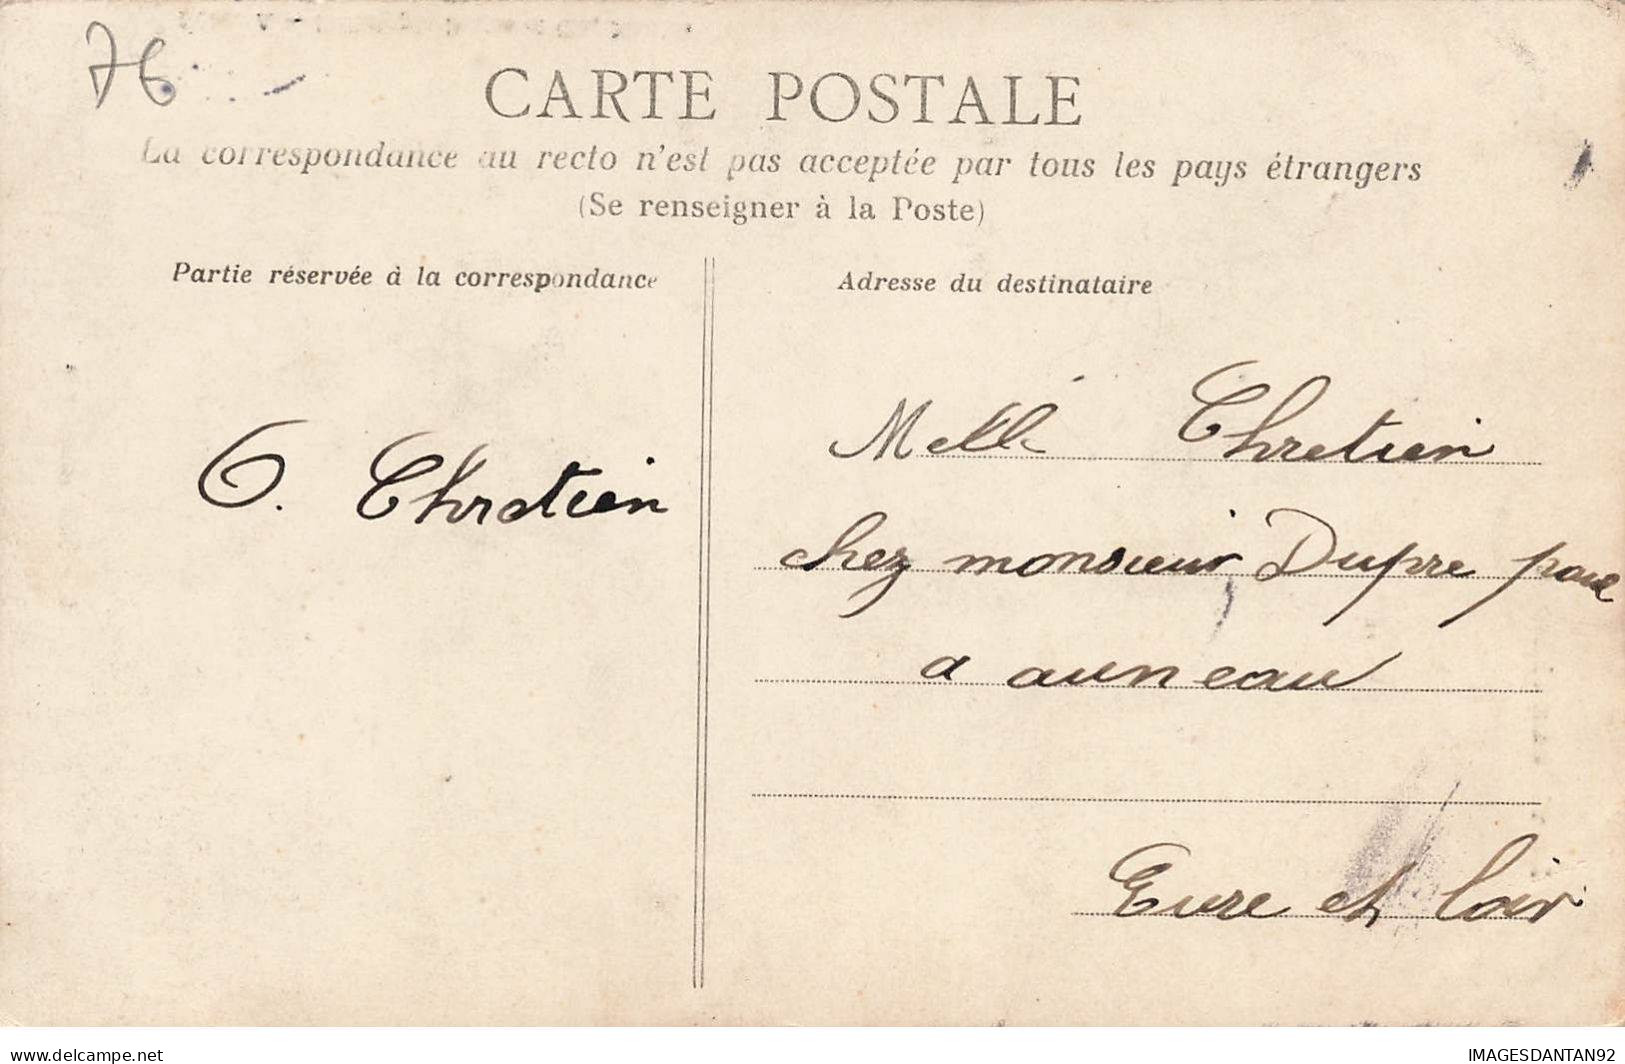 76
CARTE POSTALE
La correspondance au recto n'est pas acceptée par tous les pays étrangers
(Se renseigner à la Poste)
Partie réservée à la correspondance
Adresse du destinataire
O. Chretien
Melle Chretien
chez monsieur Dupre
a auneau
Eure et Loir
www.delcampe.net
IMAGESDANTAN92